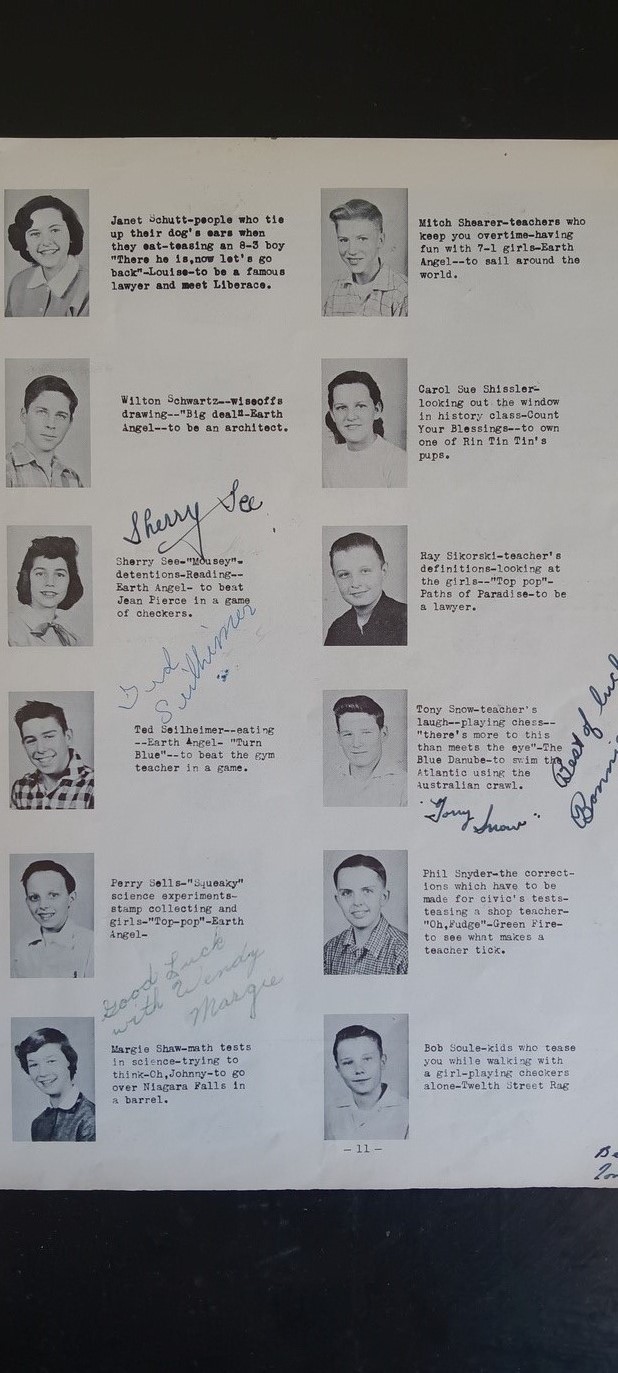 Janet Schutt-people who tie
up their dog's ears when
they eat-teasing an 8-3 boy
"There he is,now let's go
back"-Louise-to be a famous
lawyer and meet Liberace.
Wilton Schwartz--wiseoffs
drawing--"Big deal"-Earth
Angel--to be an architect.
Sherry See
Sherry See-"Mousey"-
detentions-Reading--
Earth Angel- to beat
Jean Pierce in a game
of checkers.
Ted
Seilheimer
Ted Seilheimer--eating
--Earth Angel- "Turn
Blue"--to beat the gym
teacher in a game.
Perry Sells-"Squeaky"
science experiments-
stamp collecting and
girls-"Top-pop"-Earth
Angel-
Good Luck
with Wendy
Margie
Margie Shaw-math tests
in science-trying to
think-Oh,Johnny-to go
over Niagara Falls in
a barrel.
Mitch Shearer-teachers who
keep you overtime-having
fun with 7-1 girls-Earth
Angel--to sail around the
world.
Carol Sue Shissler-
looking out the window
in history class-Count
Your Blessings--to own
one of Rin Tin Tin's
pups.
Ray Sikorski-teacher's
definitions-looking at
the girls--"Top pop"-
Paths of Paradise-to be
a lawyer.
Tony Snow-teacher's
laugh--playing chess--
"there's more to this
than meets the eye"-The
Blue Danube-to swim the
Atlantic using the
Australian crawl.
"Tony
Snow"
Best of luck
Phil Snyder-the correct-
ions which have to be
made for civic's tests-
teasing a shop teacher-
"Oh,Fudge"-Green Fire-
to see what makes a
teacher tick.
Bob Soule-kids who tease
you while walking with
a girl-playing checkers
alone-Twelth Street Rag
-11-